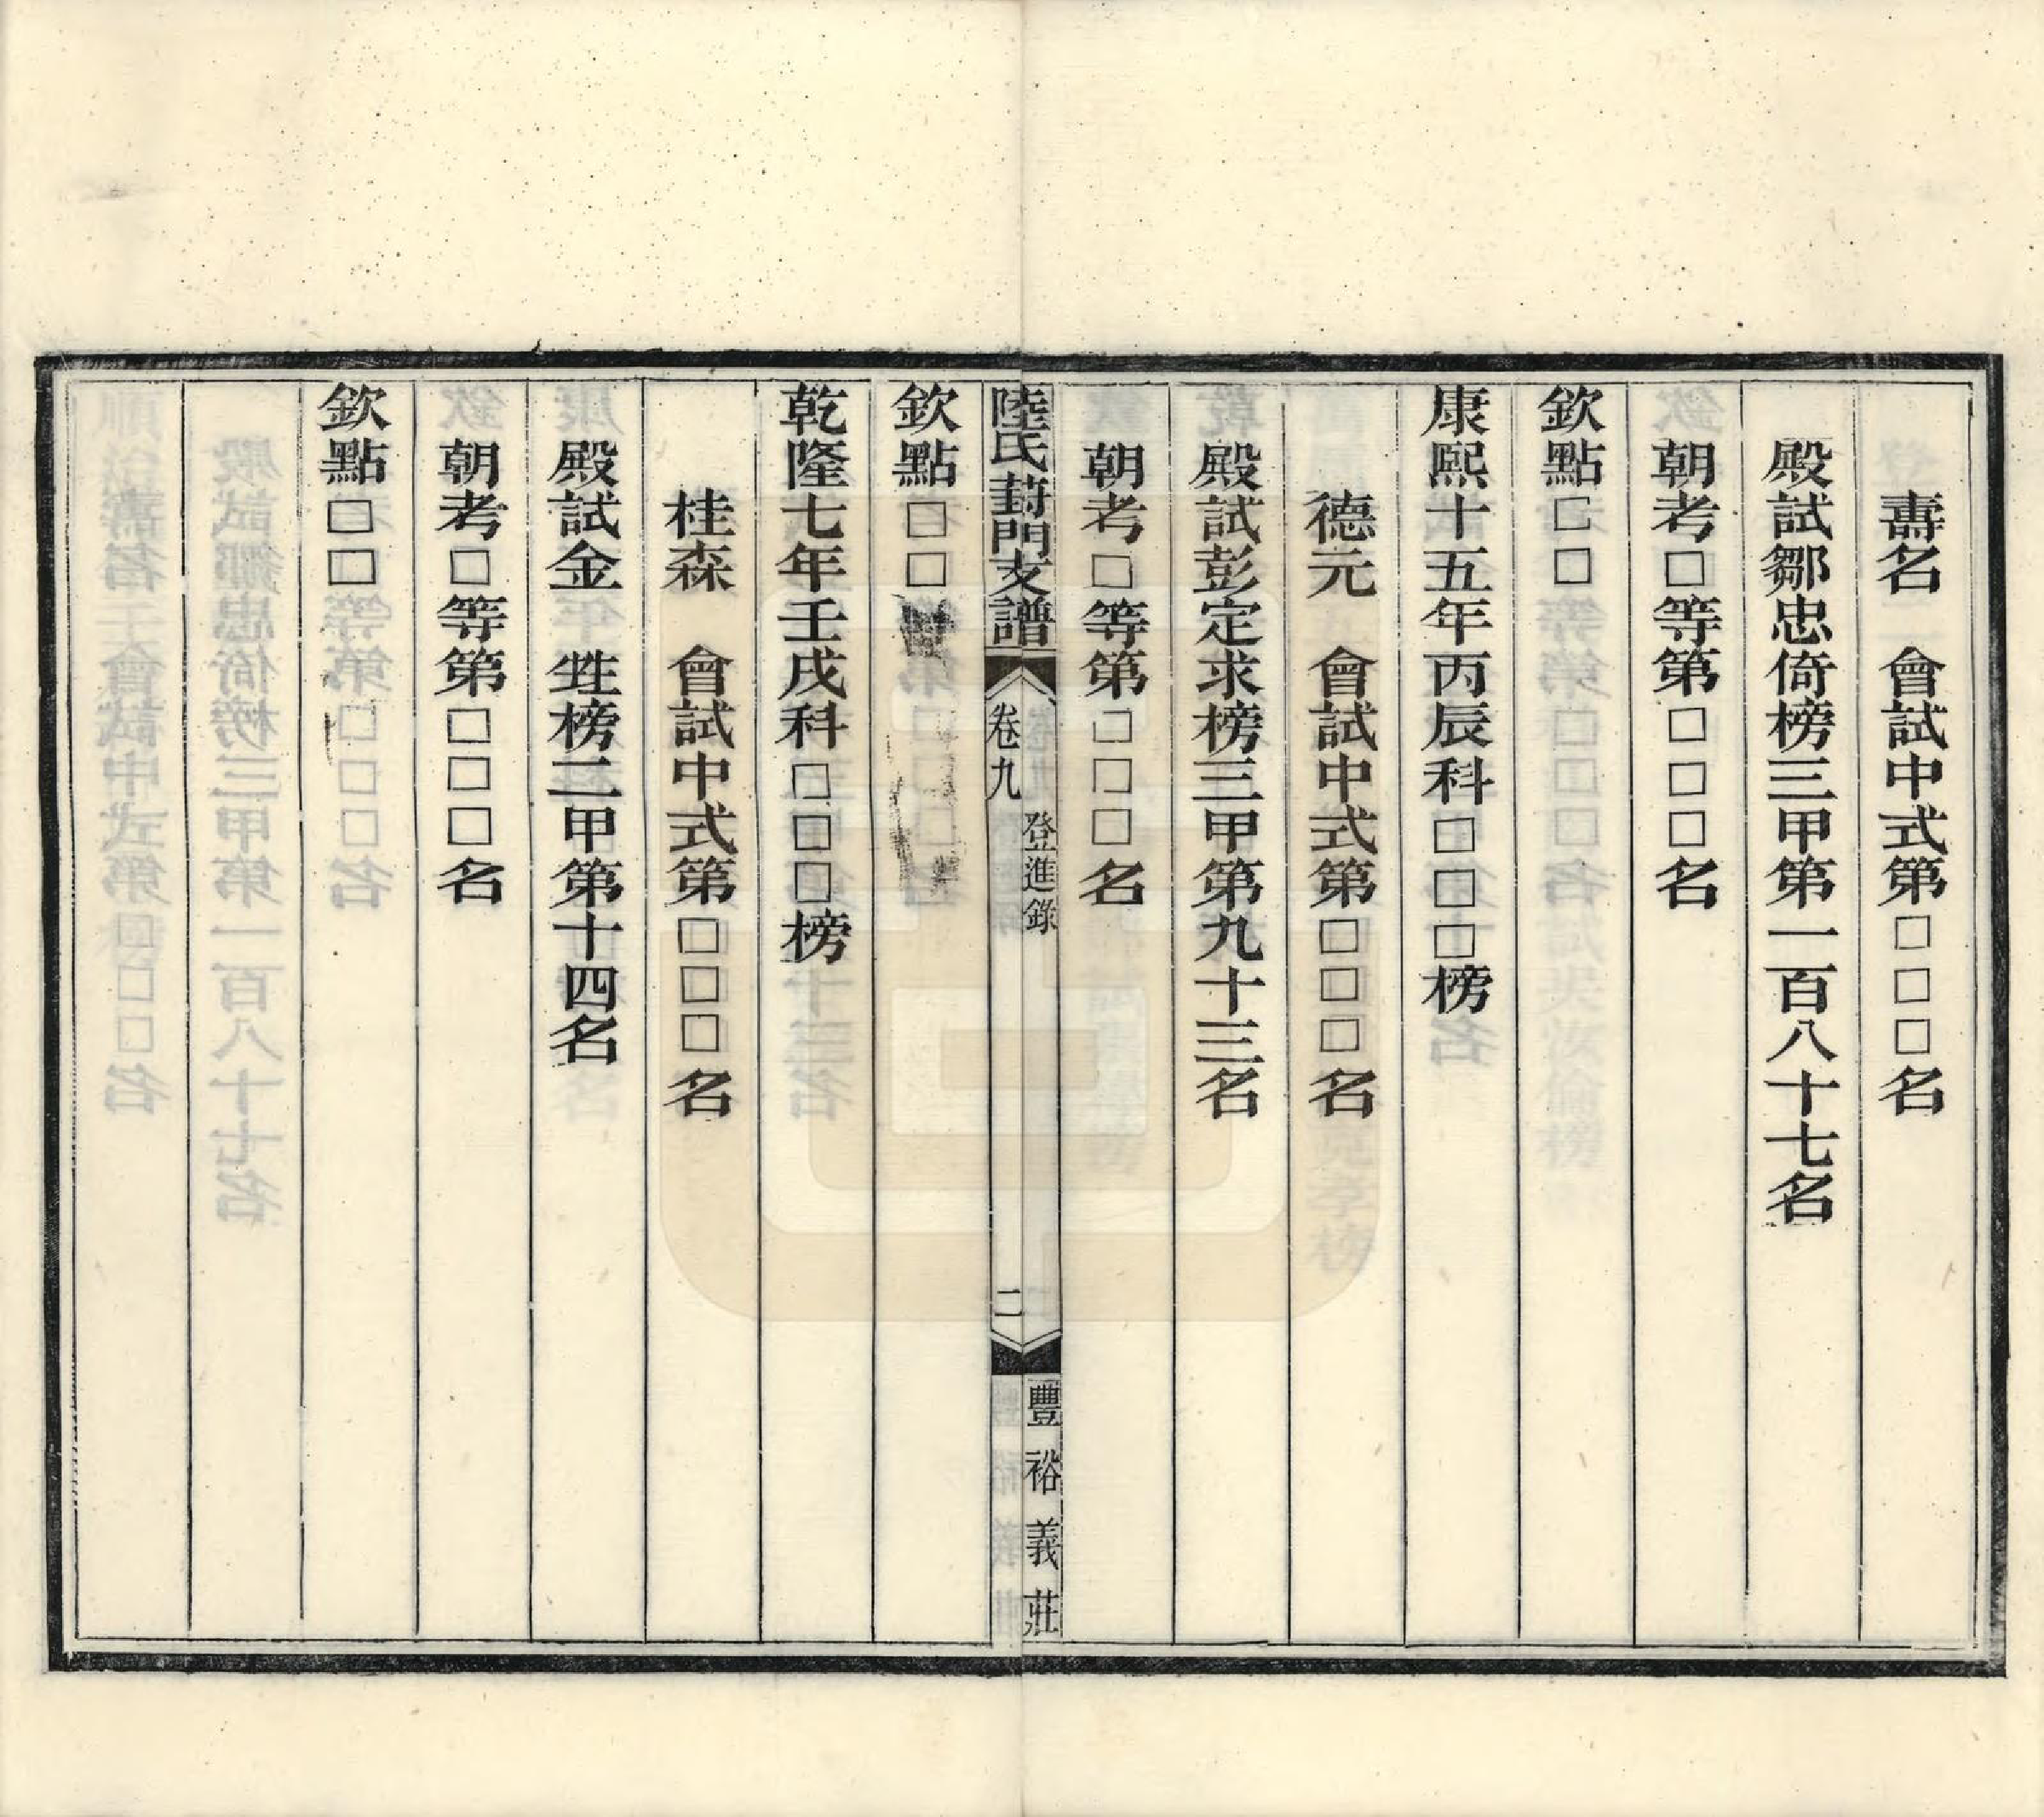 壽名　會試中式第□□□名
殿試鄒忠倚榜三甲第一百八十七名
朝考□等第□□□名
欽點□□
康熙十五年丙辰科□□□榜
德元　會試中式第□□□名
殿試彭定求榜三甲第九十三名
朝考□等第□□□名
陸氏葑門支譜
卷九
登進錄
二
豐裕義莊
欽點□□
乾隆七年壬戌科□□□榜
桂森　會試中式第□□□名
殿試金　甡榜二甲第十四名
朝考□等第□□□名
欽點□□